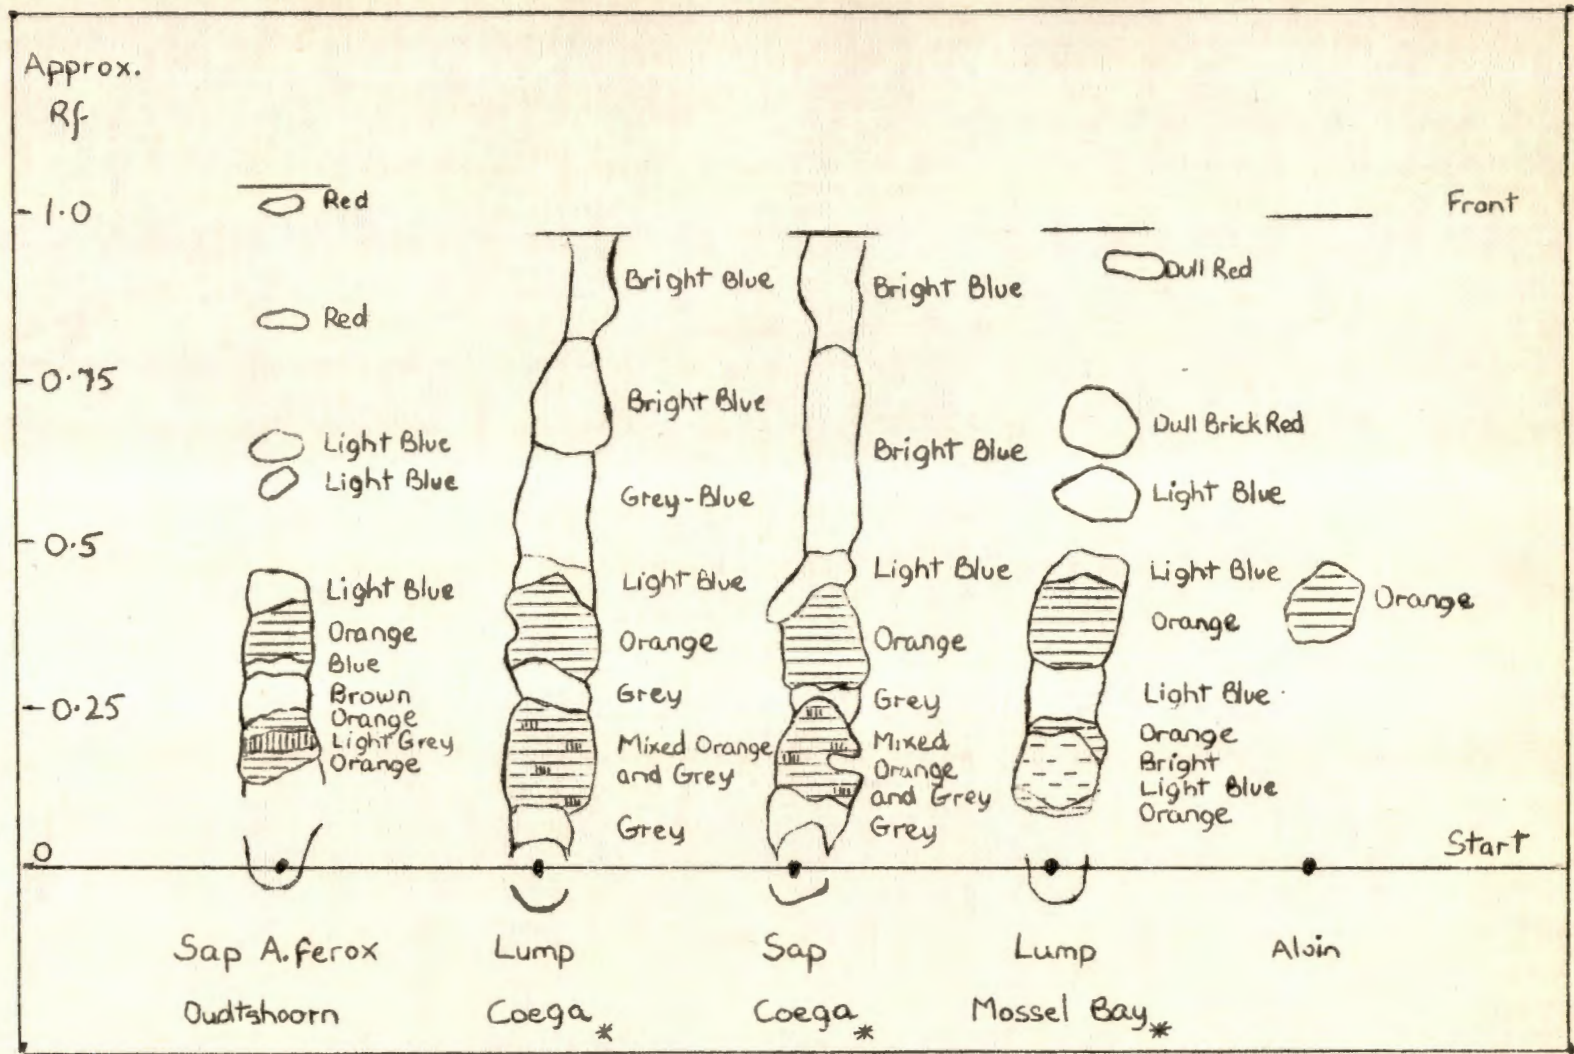 Approx.
Rf
1.0
0.75
0.5
0.25
0
Front
Start
Red
Red
Light Blue
Light Blue
Light Blue
Orange
Blue
Brown
Orange
Light Grey
Orange
Bright Blue
Bright Blue
Grey-Blue
Light Blue
Orange
Grey
Mixed Orange
and Grey
Grey
Bright Blue
Bright Blue
Light Blue
Orange
Grey
Mixed
Orange
and Grey
Grey
Dull Red
Dull Brick Red
Light Blue
Light Blue
Orange
Light Blue
Orange
Bright
Light Blue
Orange
Orange
Sap A.ferox
Oudtshoorn
Lump
Coega *
Sap
Coega *
Lump
Mossel Bay *
Aloin